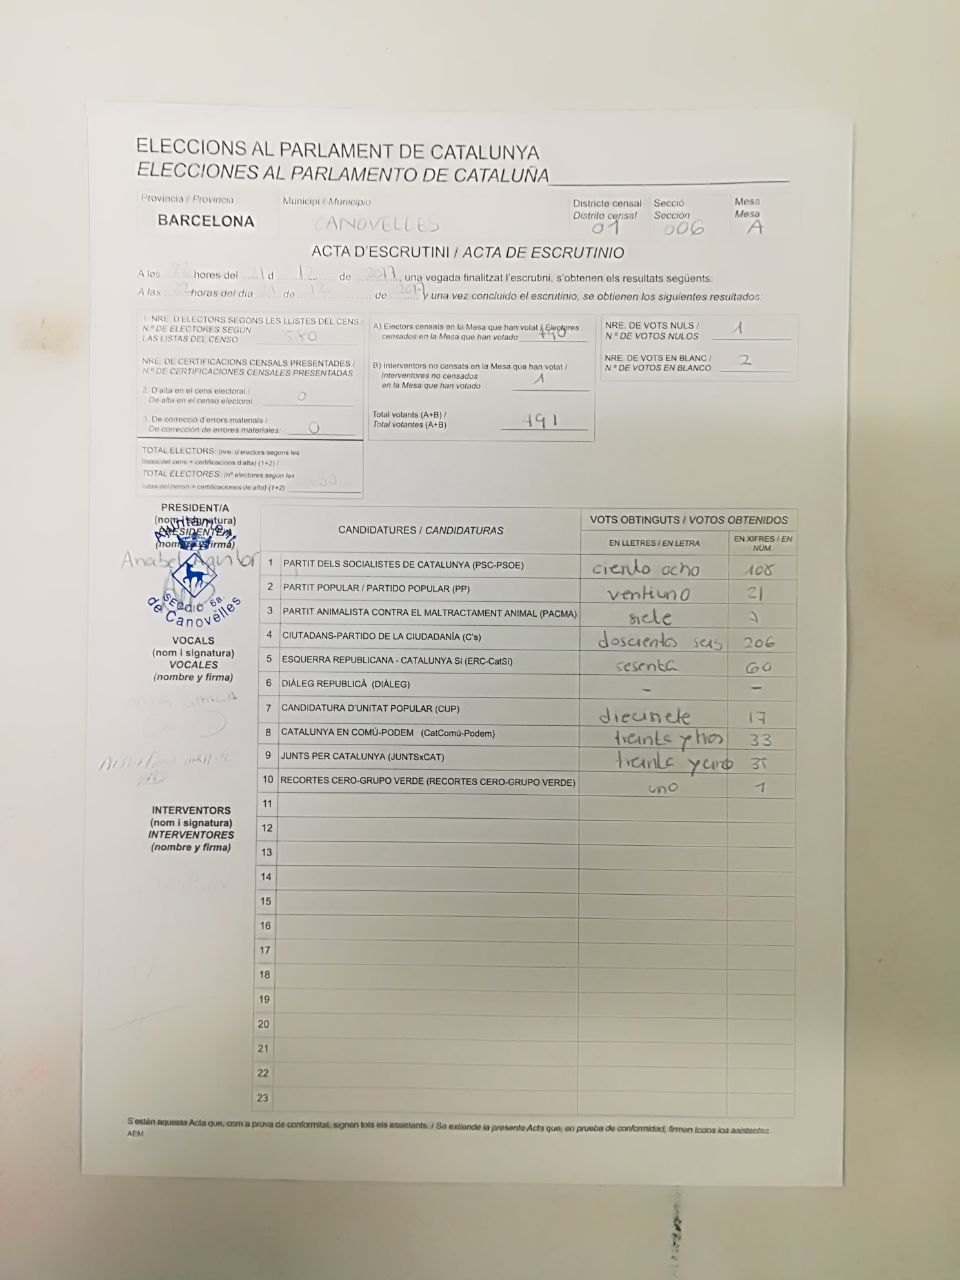 ELECCIONS AL PARLAMENT DE CATALUNYA
ELECCIONES AL PARLAMENTO DE CATALUÑA
Provincia / Provincia Municipi / Municipio Districte censal Secció Mesa
Distrito censal Sección Mesa
BARCELONA CANOVELLES 01 006 A
ACTA D'ESCRUTINI / ACTA DE ESCRUTINIO
A les hores del d 12 de 2017, una vegada finalitzat l'escrutini, s'obtenen els resultats següents:
A las horas del día de 12 de 2017 y una vez concluido el escrutinio, se obtienen los siguientes resultados:
1. NRE. D'ELECTORS SEGONS LES LLISTES DEL CENS /
N.º DE ELECTORES SEGÚN
LAS LISTAS DEL CENSO
NRE. DE CERTIFICACIONS CENSALS PRESENTADES /
N.º DE CERTIFICACIONES CENSALES PRESENTADAS
2. D'alta en el cens electoral /
De alta en el censo electoral: 0
3. De correcció d'errors materials /
De corrección de errores materiales: 0
TOTAL ELECTORS: (nre. d'electors segons les
llistes del cens + certificacions d'alta) (1+2) /
TOTAL ELECTORES: (nº electores según las
listas del censo + certificaciones de alta) (1+2)
A) Electors censats en la Mesa que han votat / Electores
censados en la Mesa que han votado 490
B) Interventors no censats en la Mesa que han votat /
Interventores no censados
en la Mesa que han votado 1
Total votants (A+B) /
Total votantes (A+B) 491
NRE. DE VOTS NULS /
N.º DE VOTOS NULOS 1
NRE. DE VOTS EN BLANC /
N.º DE VOTOS EN BLANCO 2
PRESIDENT/A
(nom i signatura)
PRESIDENTE/A
(nombre y firma)
Anabel Aguilar
Ajuntament
SECCIÓ 6a.
de Canovelles
VOCALS
(nom i signatura)
VOCALES
(nombre y firma)
INTERVENTORS
(nom i signatura)
INTERVENTORES
(nombre y firma)
CANDIDATURES / CANDIDATURAS VOTS OBTINGUTS / VOTOS OBTENIDOS
EN LLETRES / EN LETRA EN XIFRES / EN NÚM.
1 PARTIT DELS SOCIALISTES DE CATALUNYA (PSC-PSOE) ciento ocho 108
2 PARTIT POPULAR / PARTIDO POPULAR (PP) ventiuno 21
3 PARTIT ANIMALISTA CONTRA EL MALTRACTAMENT ANIMAL (PACMA) siete 7
4 CIUTADANS-PARTIDO DE LA CIUDADANÍA (C's) doscientos seis 206
5 ESQUERRA REPUBLICANA - CATALUNYA SÍ (ERC-CatSí) sesenta 60
6 DIÀLEG REPUBLICÀ (DIÀLEG) - -
7 CANDIDATURA D'UNITAT POPULAR (CUP) diecisiete 17
8 CATALUNYA EN COMÚ-PODEM (CatComú-Podem) treinta y tres 33
9 JUNTS PER CATALUNYA (JUNTSxCAT) treinta y cinco 35
10 RECORTES CERO-GRUPO VERDE (RECORTES CERO-GRUPO VERDE) uno 1
11
12
13
14
15
16
17
18
19
20
21
22
23
S'estén aquesta Acta que, com a prova de conformitat, signen tots els assistents. / Se extiende la presente Acta que, en prueba de conformidad, firman todos los asistentes.
AEM